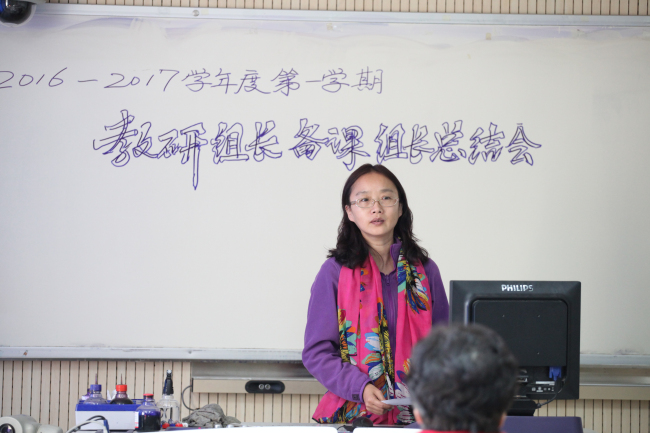 2016-2017学年度第一学期
教研组长备课组长总结会
PHILIPS